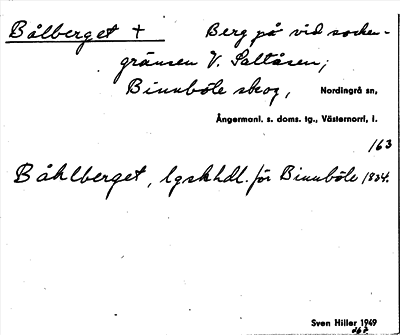 Bålberget + Berg på vid socken-
gränsen V. Saltåsen;
Binnböle skog, Nordingrå sn,
Ångermanl. s. doms. tg., Västernorrl. l.
163
Båhlberget, lgskhdl. för Binnböle 1834.
Sven Hiller 1949